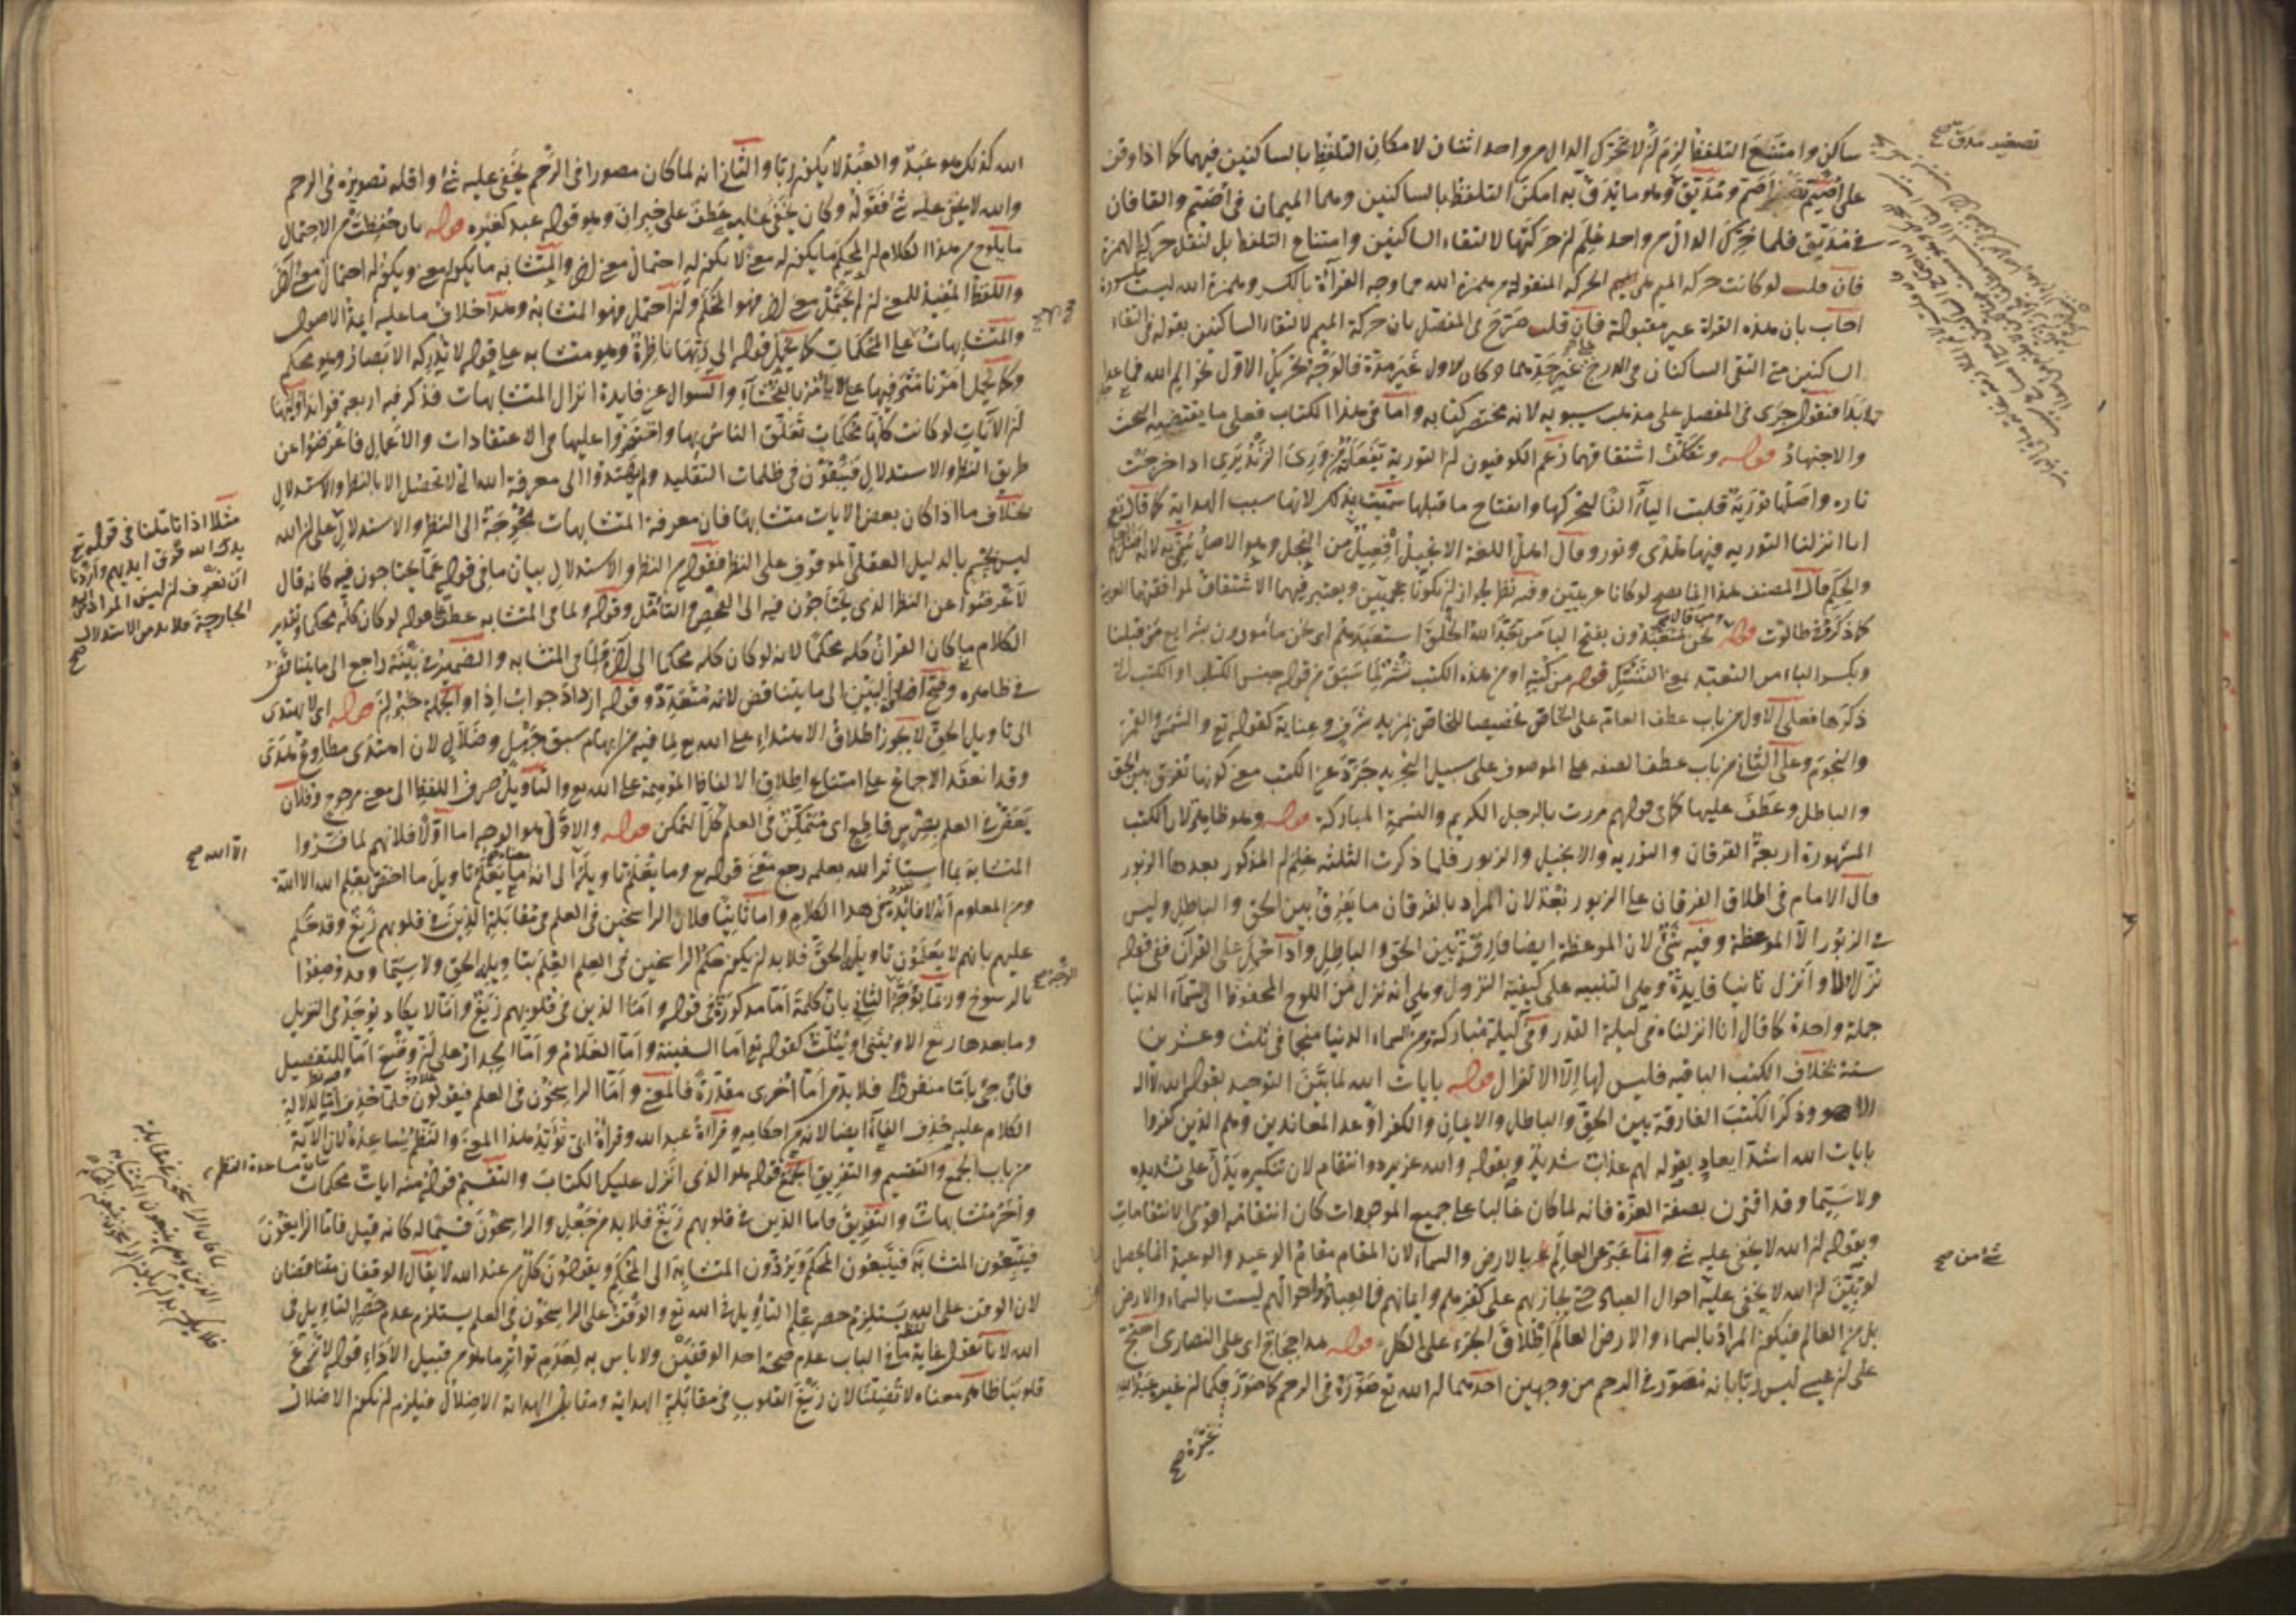 ساكن وامتنع التلفظ لزم ان لا تحرك الدال من واحد اثنان لامكان التلفظ بالساكنين فيهما كما اذا وقف
على اصيم تصغير اصم ومديق وهو ما يدق به امكن التلفظ بالساكنين وهما الميمان في اصيم والقافان
في مديق فلما حرك الدال من واحد علم ان حركتها لالتقاء الساكنين وامتناع التلفظ بل لنقل حركة الهمزة
فان قلت لو كانت حركة الميم هي الحركة المنقولة من همزة الله فما وجه القراءة بالكسر وهمزة الله ليست مكسورة
اجاب بان هذه القراة غير مقبولة فان قلت صرح في المفصل بان حركة الميم لالتقاء الساكنين بقوله في التقاء
الساكنين متى التقى الساكنان في الدرج على غير حدهما وكان الاول غير مدة فالوجه تحريك الاول نحو الم الله
فنقول جرى في المفصل على مذهب سيبويه لانه مختصر كتابه واما في هذا الكتاب فعلى ما يقتضيه البحث
والاجتهاد قوله وتكلف اشتقاقهما زعم الكوفيون ان التورية تفعلة من ورى الزند يرى اذا خرجت
ناره واصلها تورية قلبت الياء الفا لتحركها وانفتاح ما قبلها سميت بذلك لانها سبب الهداية كما قال تع
انا انزلنا التورية فيها هدى ونور وقال اهل اللغة الانجيل افعيل من النجل وهو الاصل سمي به لانه اصل العلم
والحكم قال المصنف هذا انما يصح لو كانا عربيين وفيه نظر لجواز ان يكونا عجميين ويعتبر فيهما الاشتقاق لموافقتهما العربية
كما ذكر في طالوت قوله نحن متعبدون بفتح الباء من تعبد الله الخلق استعبدهم اي نحن مأمورون بشرايع من قبلنا
وبكسر الباء من التعبد بمعنى التنسك قوله من كتبه او من هذه الكتب نشر لما سبق من قوله جنس الكتب او الكتب التي
ذكرها فعلى الاول من باب عطف العام على الخاص تخصيصا للخاص لمزيد شرف وعناية كقوله تع والشمس والقمر
والنجوم وعلى الثاني من باب عطف الصفة على الموصوف على سبيل التجريد جرد عن الكتب معنى كونها تفرق بين الحق
والباطل وعطف عليها كما في قولهم مررت بالرجل الكريم والنسمة المباركة قوله وهو ظاهر لان الكتب
المشهورة اربعة الفرقان والتورية والانجيل والزبور فلما ذكرت الثلثة علم ان المذكور بعدها الزبور
قال الامام في اطلاق الفرقان على الزبور بعد لان المراد بالفرقان ما يفرق بين الحق والباطل وليس
في الزبور الا الموعظة وفيه شئ لان الموعظة ايضا فارقة بين الحق والباطل واذا حمل على القرآن ففي قوله
نزل اولا وانزل ثانيا فايدة وهي التنبيه على كيفية النزول وهي انه نزل من اللوح المحفوظ الى السماء الدنيا
جملة واحدة كما قال انا انزلناه في ليلة القدر وفي ليلة مباركة ومن السماء الدنيا منجما في ثلث وعشرين
سنة بخلاف الكتب الباقية فليس لها الا الانزال قوله بايات الله لما بين التوحيد بقوله الله لا اله
الا هو وذكر الكتب الفارقة بين الحق والباطل والايمان والكفر اوعد المعاندين وهم الذين كفروا
بايات الله اشد ايعاد بقوله لهم عذاب شديد وبقوله والله عزيز ذو انتقام لان تنكيره يدل على شديده
ولا سيما وقد اقترن بصفة العزة فانه لما كان غالبا على جميع الموجودات كان انتقامه اقوى الانتقامات
وبقوله ان الله لا يخفى عليه شئ وانما عبر عن العالم بالارض والسماء لان المقام مقام الوعيد والوعيد انما يحصل
لو تبين ان الله لا يخفى عليه احوال العباد حتى يجازيهم على كفرهم وايمانهم فالعباد واحوالهم ليست بالسماء والارض
بل من العالم فيكون المراد بالسماء والارض العالم اطلاق الجزء على الكل قوله هذا حجاج اي على النصارى احتج
على ان عيسى ليس ربا بانه تصور في الرحم من وجهين احدهما ان الله تع صوره في الرحم كما صور فكما ان غير عبد الله
تصغير مدق صح
شئ من صح
غيره صح
الله كذلك هو عبد والعبد لا يكون ربا والثاني انه لما كان مصورا في الرحم يخفى عليه شئ واقله تصويره في الرحم
والله لا يخفى عليه شئ فقوله وكان يخفى عليه عطف على خبر ان وهو قوله عبد كغيره قوله بان حفظت من الاحتمال
ما يلوح من هذا الكلام ان المحكم ما يكون له معنى لا يكون له احتمال معنى اخر والمتشابه ما يكون له معنى ويكون له احتمال معنى اخر
واللفظ المفيد للمعنى ان لم يحتمل معنى اخر فهو المحكم وان احتمل فهو المتشابه وهذا خلاف ما عليه ائمة الاصول
والمتشابهات على المحكمات كما يحمل قوله الى ربها ناظرة وهو متشابه على قوله لا تدركه الابصار وهو محكم
وكما يحمل امرنا مترفيها على لا يأمر بالفحشاء والسوال عن فايدة انزال المتشابهات فذكر فيه اربعة فوايد اولها
ان الايات لو كانت كلها محكمات تعلق الناس بها واقتصروا عليها في الاعتقادات والاعمال فاعرضوا عن
طريق النظر والاستدلال فيبقون في ظلمات التقليد ولم يهتدوا الى معرفة الله التي لا تحصل الا بالنظر والاستدلال
بخلاف ما اذا كان بعض الايات متشابها فان معرفة المتشابهات محوجة الى النظر والاستدلال على ان الله
ليس بجسم بالدليل العقلي الموقوف على النظر فقوله من النظر والاستدلال بيان ما في قوله عما يحتاجون فيه كانه قال
لأعرضوا عن النظر الذي يحتاجون فيه الى الفحص والتأمل وقوله ولما في المتشابه عطف على قوله لو كان كله محكما وتقدير
الكلام ما كان القرآن كله محكما لانه لو كان كله محكما الى آخره ولما في المتشابه والضمير في بينه راجع الى ما يتناقض
في ظاهره وصح اضافة بين الى ما يتناقض لانه متعدد وقوله ازداد جواب اذا والجملة خبر ان قوله اي لا يهتدى
الى تاويل الحق لا يجوز اطلاق الاهتداء على الله تع لما فيه من ايهام سبق جهل وضلال لان اهتدى مطاوع هدى
وقد انعقد الاجماع على امتناع اطلاق الالفاظ الموهمة على الله تع والتأويل صرف اللفظ الى معنى مرجوح وفلان
يعض في العلم بضرس قاطع اي متمكن في العلم كل التمكن قوله والاول هو الوجه اما اولا فلانهم لما فسروا
المتشابه بما استأثر الله بعلمه رجع معنى قوله تع وما يعلم تاويله الى انه ما يعلم تاويل ما اختص بعلم الله الا الله
ومن المعلوم انه لا فائدة في هذا الكلام واما ثانيا فلان الراسخين في العلم في مقابلة الذين في قلوبهم زيغ وقد حكم
عليهم بانهم لا يعلمون تاويله الحق فلا بد ان يكون حكم الراسخين في العلم العلم بتاويله الحق ولا سيما وقد وصفوا
بالرسوخ وربما يوجه الثاني بان كلمة اما مذكورة في قوله واما الذين في قلوبهم زيغ واما لا يكاد يوجد في التنزيل
وما بعدها رفع الا ويثنى او يثلث كقوله تع اما السفينة واما الغلام واما الجدار على ان وضع اما للتفصيل
فان جئ باما منفردة فلا بد من اما اخرى مقدرة فالمعنى واما الراسخون في العلم فيقولون فلما حذف اما لدلالة
الكلام عليه حذف الفاء ايضا لانه من احكامه وقراءة عبد الله وقراءة ابي تؤيد هذا المعنى والنظم يساعده لان الآية
من باب الجمع والتقسيم والتفريق الجمع قوله هو الذي انزل عليك الكتاب والتقسيم قوله منه ايات محكمات
واخر متشابهات والتفريق فاما الذين في قلوبهم زيغ فلا بد من جعل والراسخون قسيما له كانه قيل فاما الزايغون
فيتبعون المتشابه فيتبعون المحكم ويردون المتشابه الى المحكم ويقولون كل من عند الله لا يقال الوقفان متناقضان
لان الوقف على الله يستلزم حصر علم التأويل في الله تع والوقف على الراسخون في العلم يستلزم عدم حصر التاويل في
الله لانا نقول غاية ما في الباب عدم صحة احد الوقفين ولا باس به لعدم تواتر ما هو من قبيل الأداء قوله لا تزغ
قلوبنا ظاهر معناه لا تضلنا لان زيغ القلوب في مقابلة الهداية ومقابل الهداية الاضلال فيلزم ان يكون الاضلال
مثلا اذا تاملنا في قوله تع
يد الله فوق ايديهم واردنا
ان نعرف ان ليس المراد
الجارحة فلا بد من الاستدلال
صح
الا الله صح